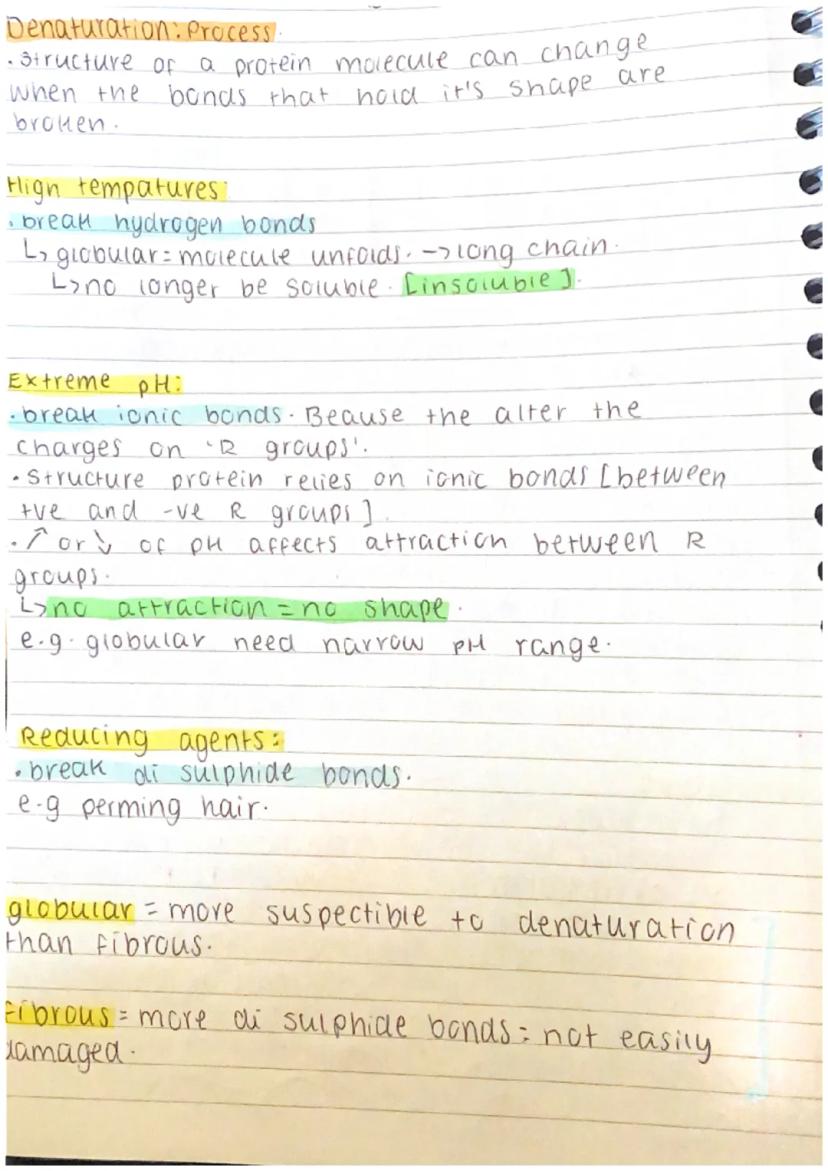 Denaturation: Process.
• Structure of a protein molecule can change
when the bonds that hold it's shape are
broken.
High tempatures:
• break hydrogen bonds
↳ globular = molecule unfolds. → long chain.
↳ no longer be soluble. [insoluble].
Extreme pH:
• break ionic bonds. Beause the alter the
charges on 'R groups'.
• Structure protein relies on ionic bonds [between
+ve and -ve R groups].
• ↑ or ↓ of pH affects attraction between R
groups.
↳ no attraction = no shape.
e.g. globular need narrow pH range.
Reducing agents:
• break di sulphide bonds.
e.g perming hair.
globular = more suspectible to denaturation
than fibrous.
fibrous = more di sulphide bonds = not easily
damaged.